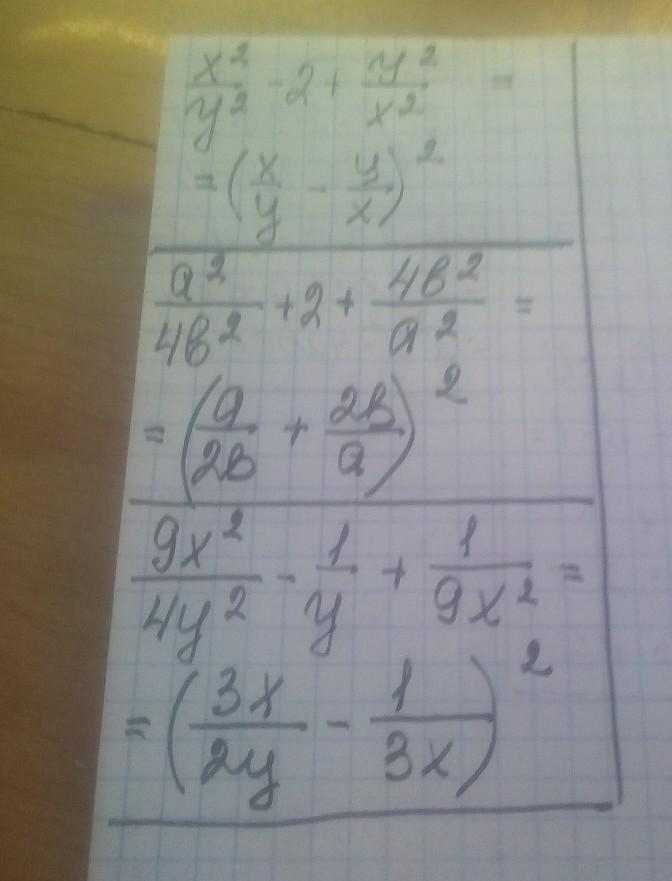 x²/y² - 2 + y²/x² =
= (x/y - y/x)²
a²/4b² + 2 + 4b²/a² =
= (a/2b + 2b/a)²
9x²/4y² - 1/y + 1/9x² =
= (3x/2y - 1/3x)²